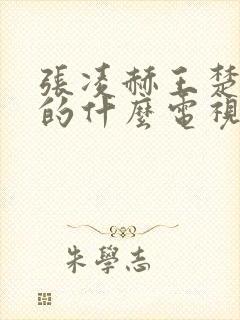 張凌赫王楚
的什麼電視
朱學志